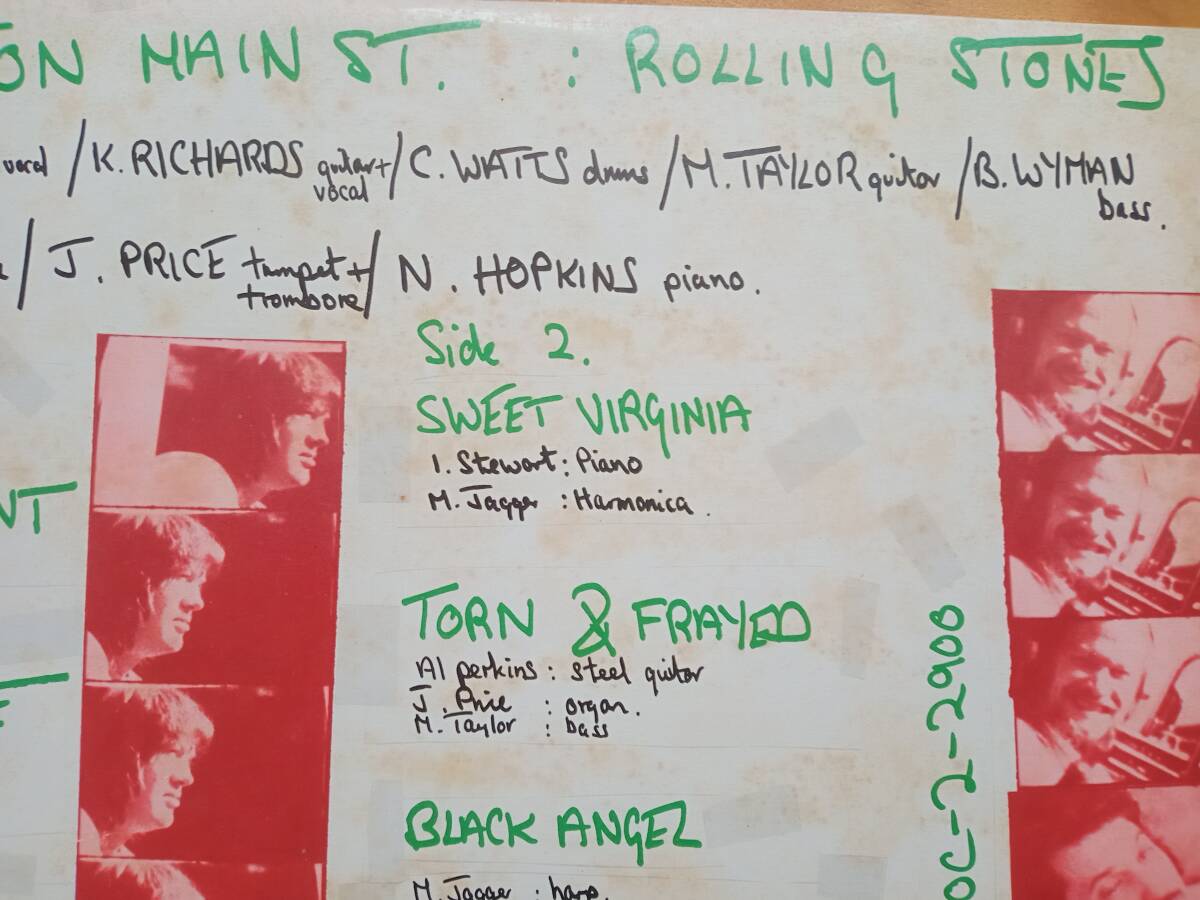 ON MAIN ST. : ROLLING STONES
vocal / K. RICHARDS guitar + vocal / C. WATTS drums / M. TAYLOR guitar / B. WYMAN bass.
/ J. PRICE trumpet + trombone / N. HOPKINS piano.
Side 2.
SWEET VIRGINIA
I. Stewart : Piano
M. Jagger : Harmonica
NT
TORN & FRAYED
Al perkins : steel guitar
J. Price : organ.
M. Taylor : bass
E
BLACK ANGEL
M. Jagger : harp.
OC-2-2900